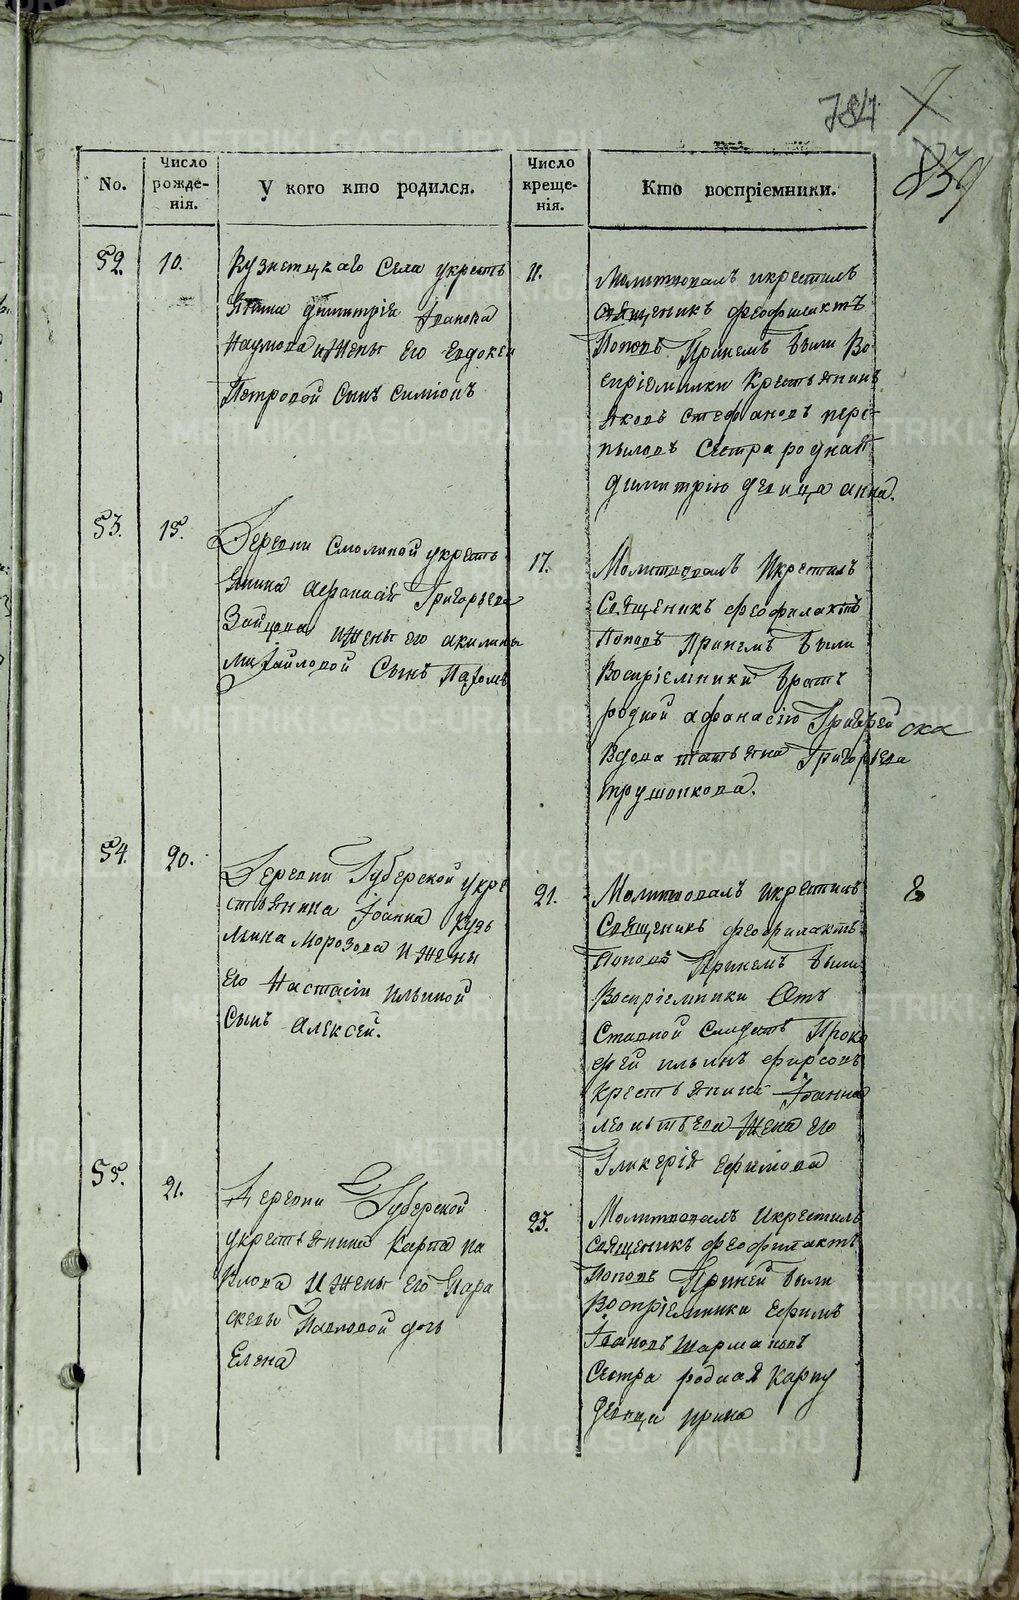 784
839
No.
Число рожде-нія.
У кого кто родился.
Число креще-нія.
Кто воспріемники.
52.
10.
Кузнецкаго Села укресть
янина Димитрія Іванова
Наумова ижены его Евдокеи
Петровой Сынъ Симіонъ
11.
Молитвовалъ икрестилъ
священникъ феофилактъ
Поповъ Принемъ были Во
спріемники Крестьянинъ
Яковъ стефановъ пере-
пыловъ Сестра родная
димитрію девица анна.
53.
15.
Деревни Смолиной укресть
янина афанасія Григорьева
Зайцова ижены его акилины
михайловой Сынъ Пахомъ
17.
Молитвовалъ Икрестилъ
Священникъ феофилактъ
Поповъ Принемъ были
Воспріемники братъ
родной афанасію Григорей
Вдова татьяна Григорьева
трушонкова.
54.
20.
Деревни Губерской укре
стьянина Іоанна Кузь
мина Морозова ижены
его Настасіи ильиной
Сынъ алексей.
21.
Молитвовалъ икрестилъ
Священникъ феофилактъ
Поповъ Принемъ были
Воспріемники Отъ
Ставной Солдатъ Проко
фей ильинъ фирсовъ
крестьянина Іоанна
леонтьева Жена его
Гликерія ефимова
55.
21.
Деревни Губерской
укрестьянина Карпа па
влова ижены его Пара
скевы Павловой дочь
Елена
23.
Молитвовалъ Икрестилъ
священникъ феофилактъ
Поповъ Приней были
Воспріемники ефимъ
Івановъ шармановъ
Сестра родная Карпу
девица ирина
METRIKI.GASO-URAL.RU